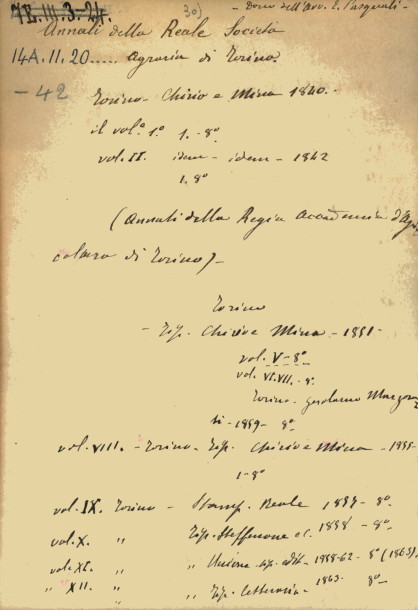 7B.III.3-24. 30) - Dono dell'Avv. E. Pasquali -
Annali della Reale Società
14A.11.20..... Agraria di Torino.
- 42
Torino - Chirio e Mina 1840. -
il vol.° 1.° 1. - 8°
vol. II. idem - idem - 1842
1. 8°
(Annali della Regia Accademia d'Agri
coltura di Torino) -
Torino
- Tip. Chirio e Mina - 1851 -
vol. V - 8°
vol. VI. VII. - 8.
Torino - Gerolamo Marzora
ti - 1859 - 8°
vol. VIII. - Torino - Tip. Chirio e Mina - 1855 -
1 - 8°
vol. IX. Torino - Stamp. Reale 1857 - 8°.
vol. X. " Tip. Steffenone e C. 1858 - 8°.
vol. XI. " " Unione tip. edit. - 1858-62 - 8° (1863).
" XII. " " Tip. Letteraria - 1863. 8°